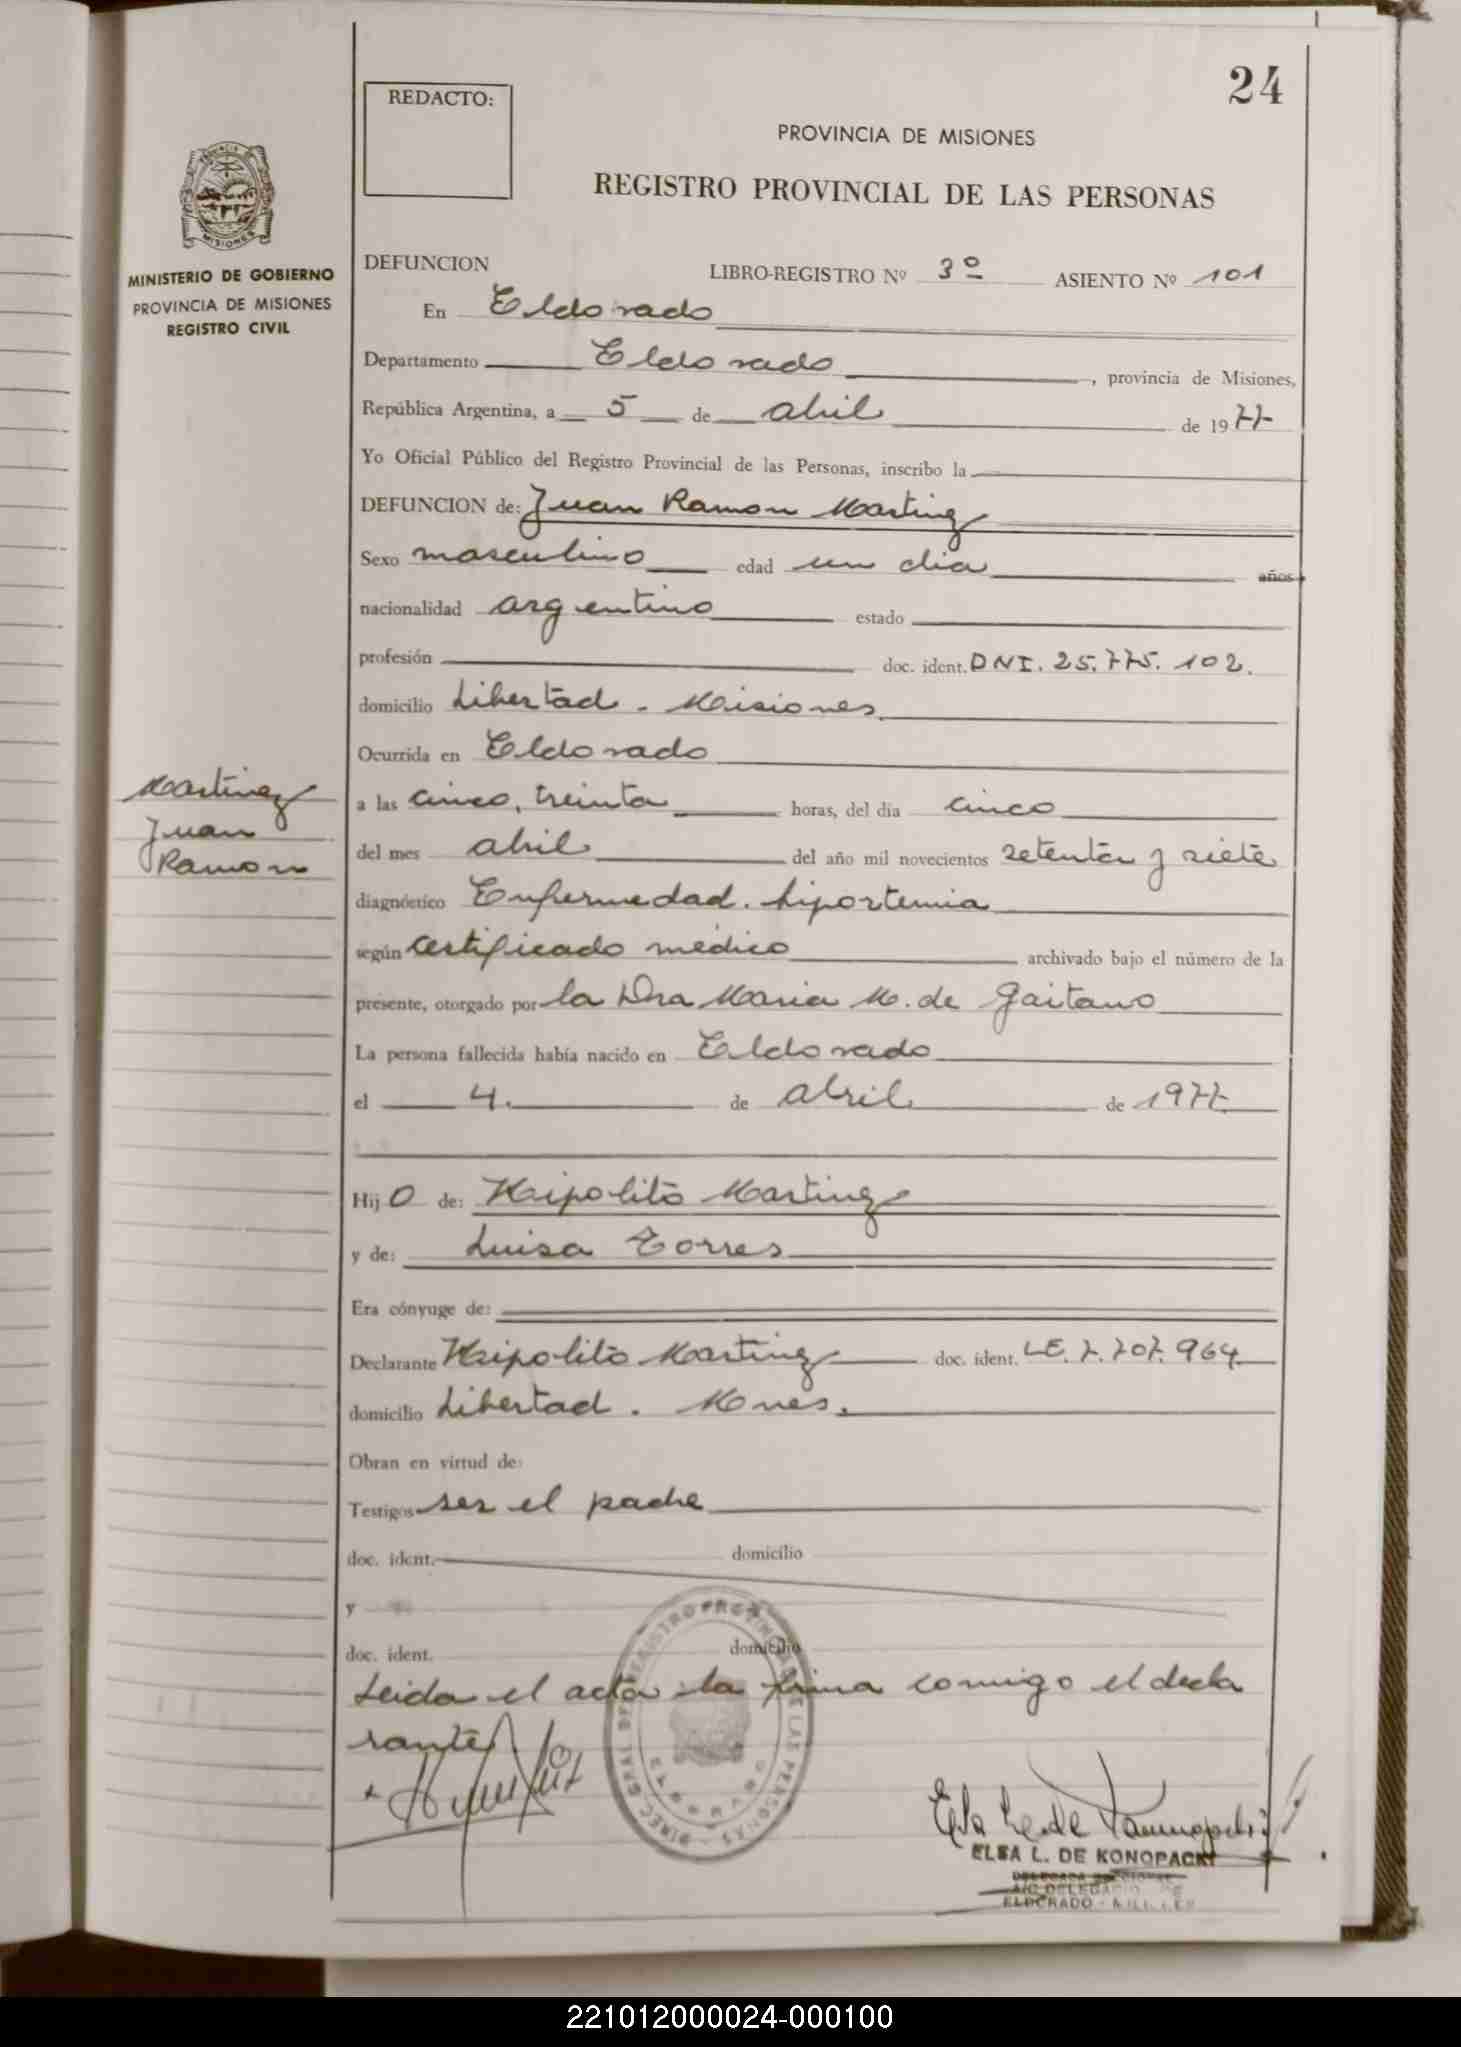 24
REDACTO:
PROVINCIA DE MISIONES
REGISTRO PROVINCIAL DE LAS PERSONAS
MINISTERIO DE GOBIERNO
PROVINCIA DE MISIONES
REGISTRO CIVIL
DEFUNCION LIBRO-REGISTRO Nº 3º ASIENTO Nº 101
En Eldorado
Departamento Eldorado, provincia de Misiones,
República Argentina, a 5 de abril de 1977
Yo Oficial Público del Registro Provincial de las Personas, inscribo la
DEFUNCION de: Juan Ramon Martinez
Sexo masculino edad un dia años
nacionalidad argentino estado
profesión doc. ident. DNI. 25.775.102.
domicilio Libertad. Misiones
Ocurrida en Eldorado
a las cinco, treinta horas, del día cinco
del mes abril del año mil novecientos setenta y siete
diagnóstico Enfermedad. hiportemia
según certificado médico archivado bajo el número de la
presente, otorgado por la Dra Maria M. de Gaitano
La persona fallecida había nacido en Eldorado
el 4. de abril de 1977.
Martinez
Juan
Ramon
Hijo de: Hipolito Martinez
y de: Luisa Torres
Era cónyuge de:
Declarante Hipolito Martinez doc. ident. LE. 7.707.964
domicilio Libertad. Mnes.
Obran en virtud de:
Testigos ser el padre
doc. ident. domicilio
y
doc. ident. domicilio
Leida el acta la firma comigo el decla
rante
ELSA L. DE KONOPACKI
ELDORADO
221012000024-000100